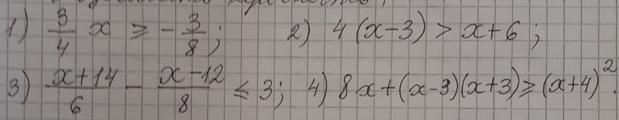 1) 3/4 x ≥ -3/8; 2) 4(x-3) > x+6;
3) (x+14)/6 - (x-12)/8 ≤ 3; 4) 8x+(x-3)(x+3) ≥ (x+4)².